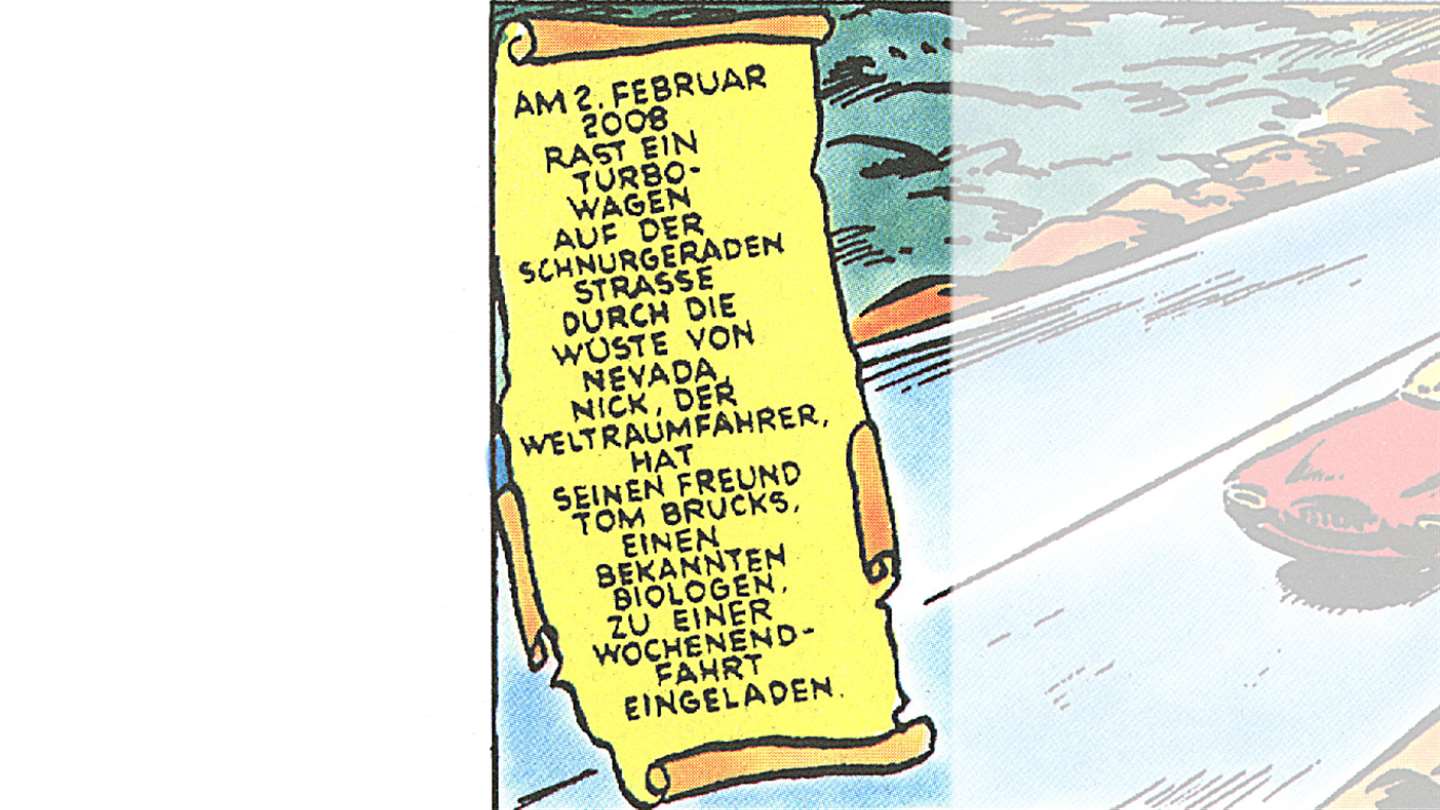 AM 2. FEBRUAR
2008
RAST EIN
TURBO-
WAGEN
AUF DER
SCHNURGERADEN
STRASSE
DURCH DIE
WÜSTE VON
NEVADA.
NICK, DER
WELTRAUMFAHRER,
HAT
SEINEN FREUND
TOM BRUCKS,
EINEN
BEKANNTEN
BIOLOGEN,
ZU EINER
WOCHENEND-
FAHRT
EINGELADEN.